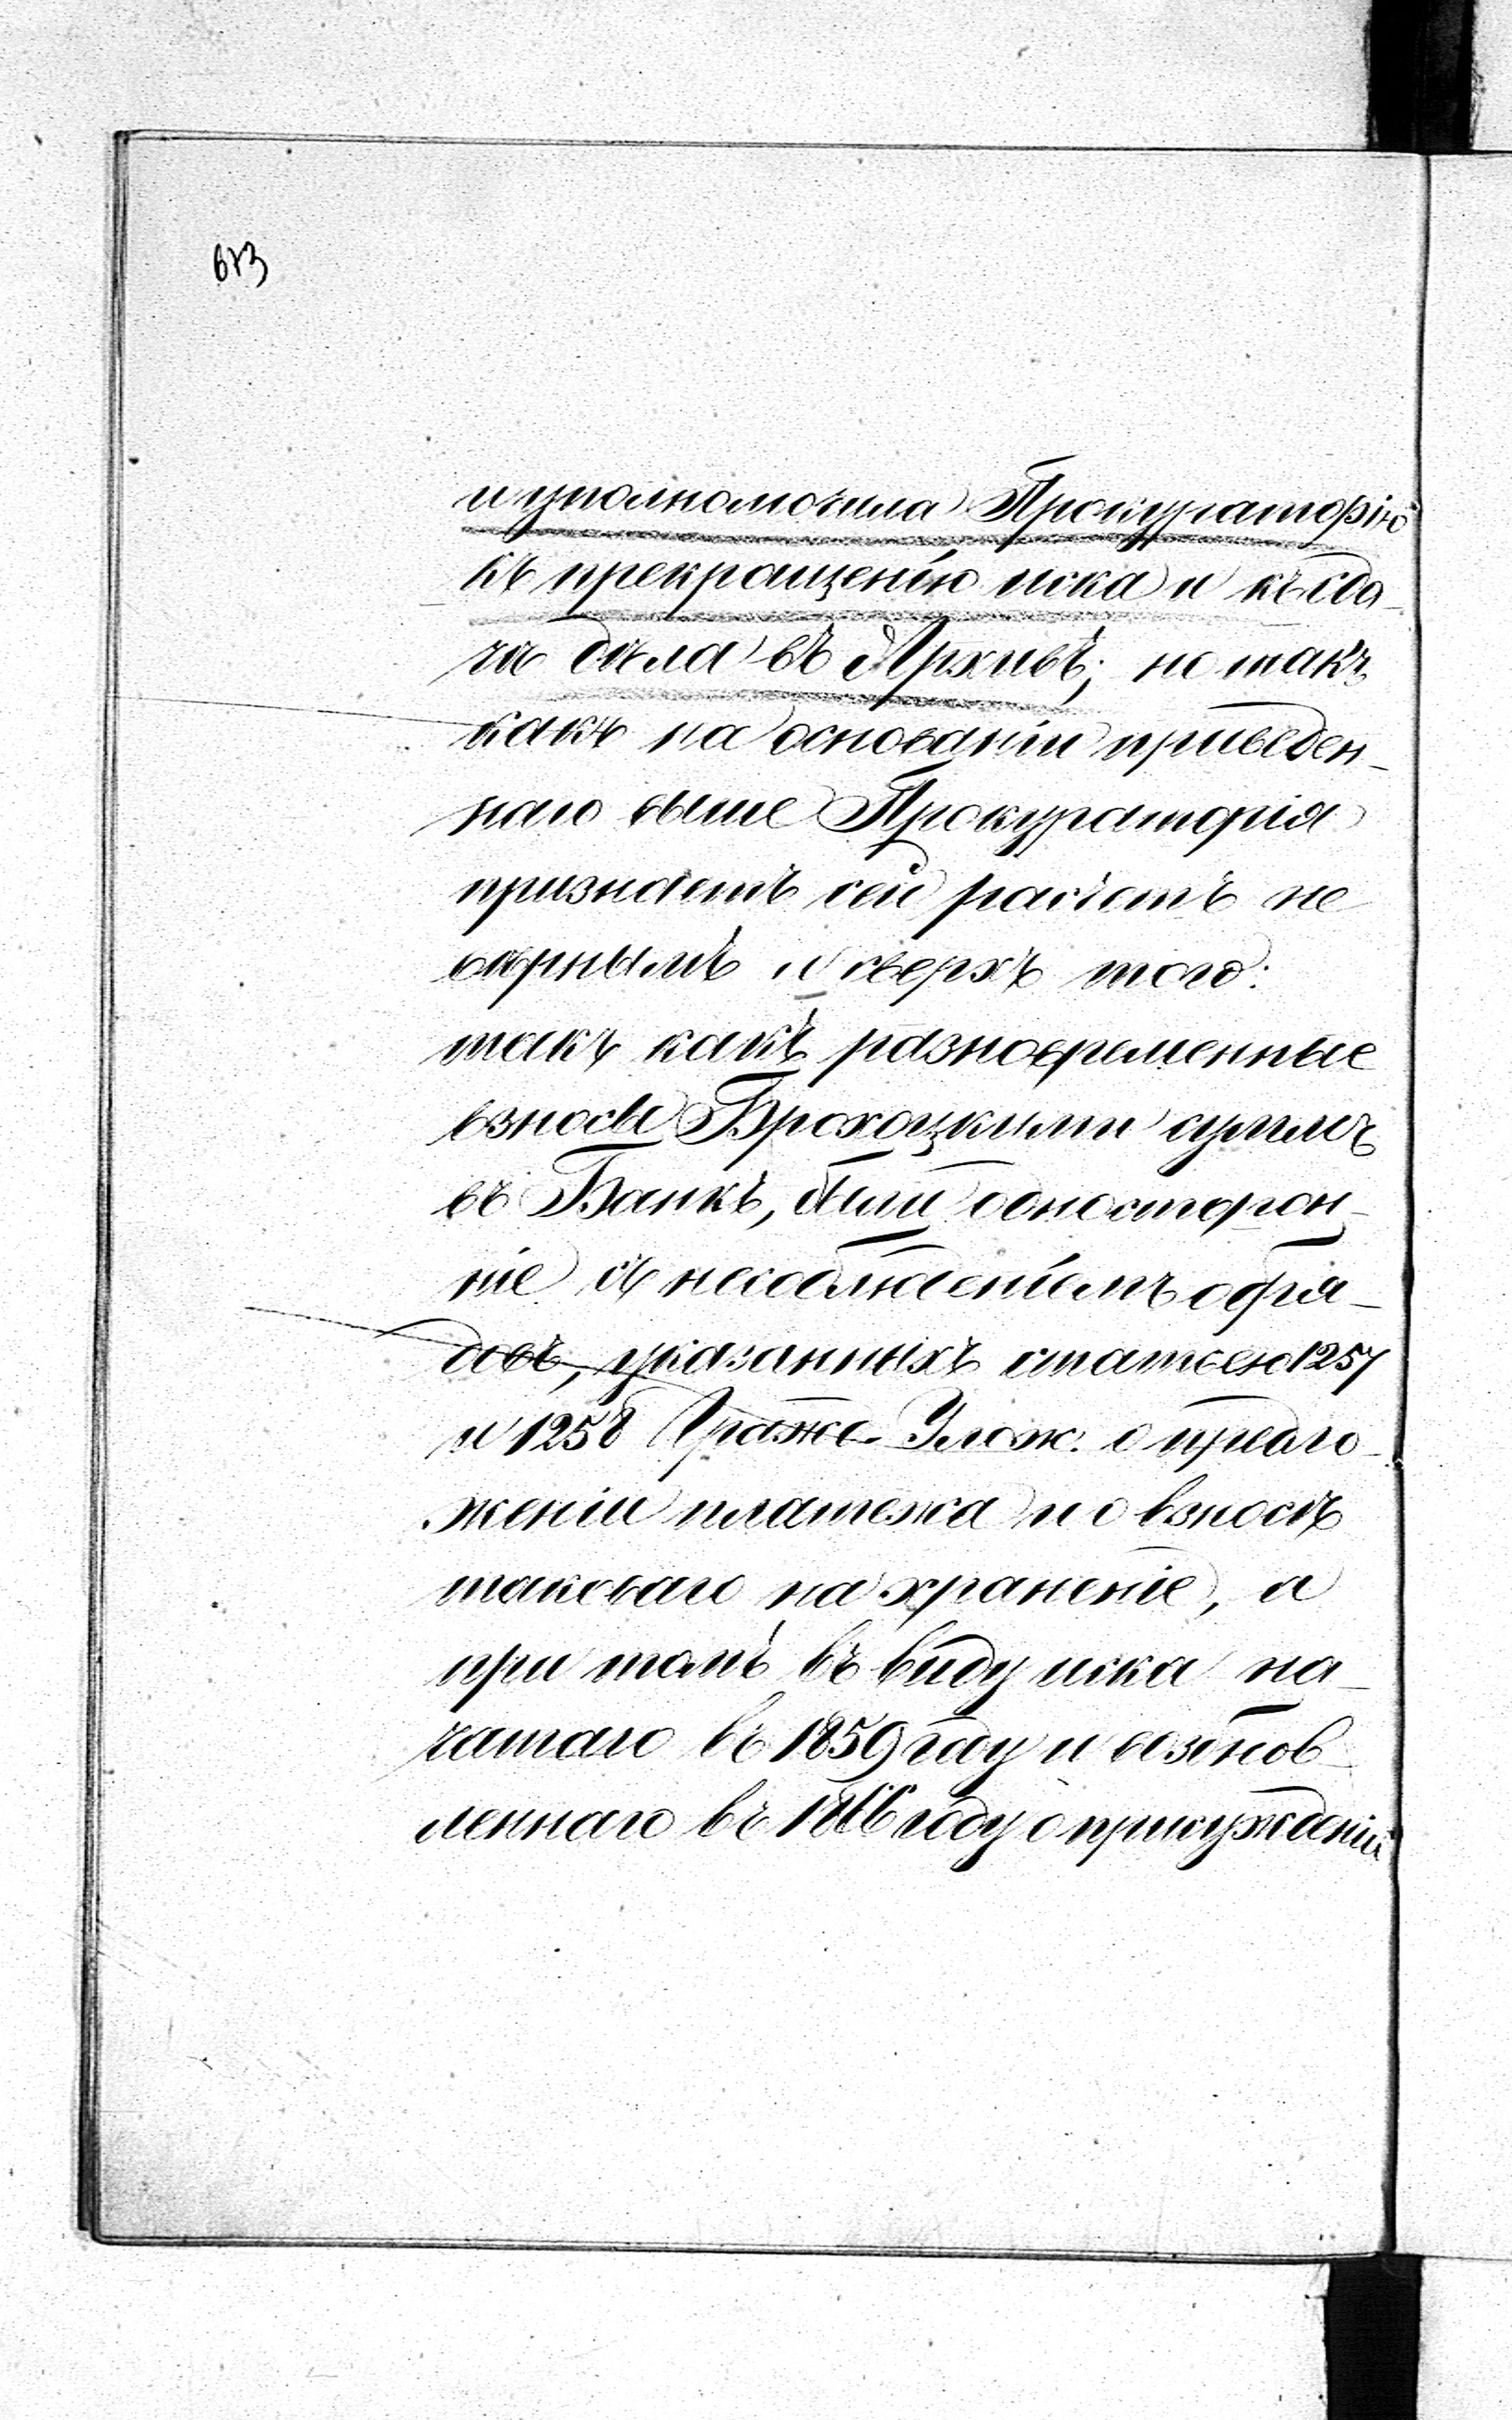 673
и уполномочила Прокураторію
къ прекращенію иска и къ сда-
чѣ дѣла въ Архивъ; но такъ
какъ на основаніи приведен-
наго выше Прокураторія
признаетъ сей расчетъ не
вѣрнымъ и сверхъ того:
такъ какъ разновременные
взносы Брохоцкими суммъ
въ Банкъ, были односторон-
ніе съ несоблюденіемъ обря-
довъ, указанныхъ статьею 1257
и 1258 Гражд. Улож. о предло-
женіи платежа и о взносѣ
таковаго на храненіе, а
при томъ въ виду иска на-
чатаго въ 1859 году и возобнов-
леннаго въ 1866 году о присужденіи